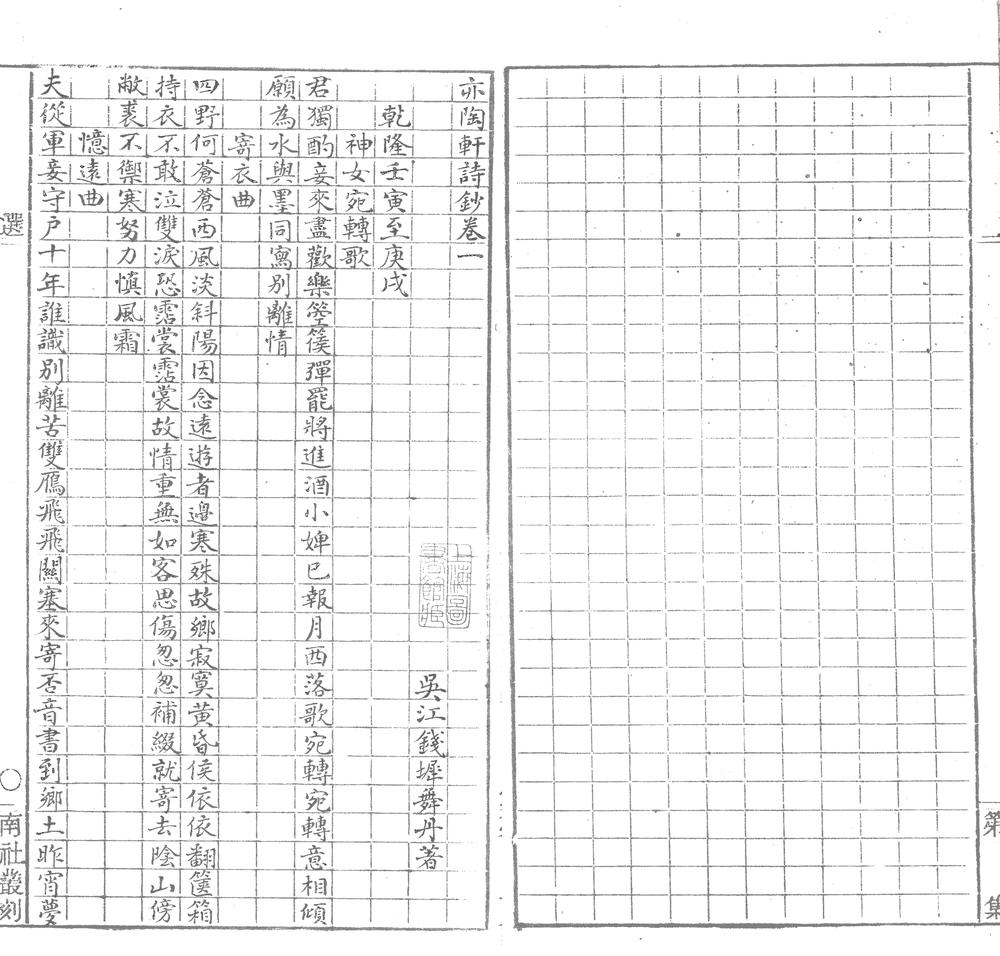 第 集
亦陶軒詩鈔卷一
吳江錢墀舞丹著
乾隆壬寅至庚戌
神女宛轉歌
君獨酌妾來盡歡樂箜篌彈罷將進酒小婢已報月西落歌宛轉宛轉意相傾
願為水與墨同寫別離情
寄衣曲
四野何蒼蒼西風淡斜陽因念遠遊者邊寒殊故鄉寂寞黃昏候依依翻篋箱
持衣不敢泣雙淚恐霑裳霑裳故情重無如客思傷怱怱補綴就寄去陰山傍
敝裘不禦寒努力慎風霜
憶遠曲
夫從軍妾守戶十年誰識別離苦雙鴈飛飛關塞來寄否音書到鄉土昨宵夢
選 〇 南社叢刻
上海圖書館藏